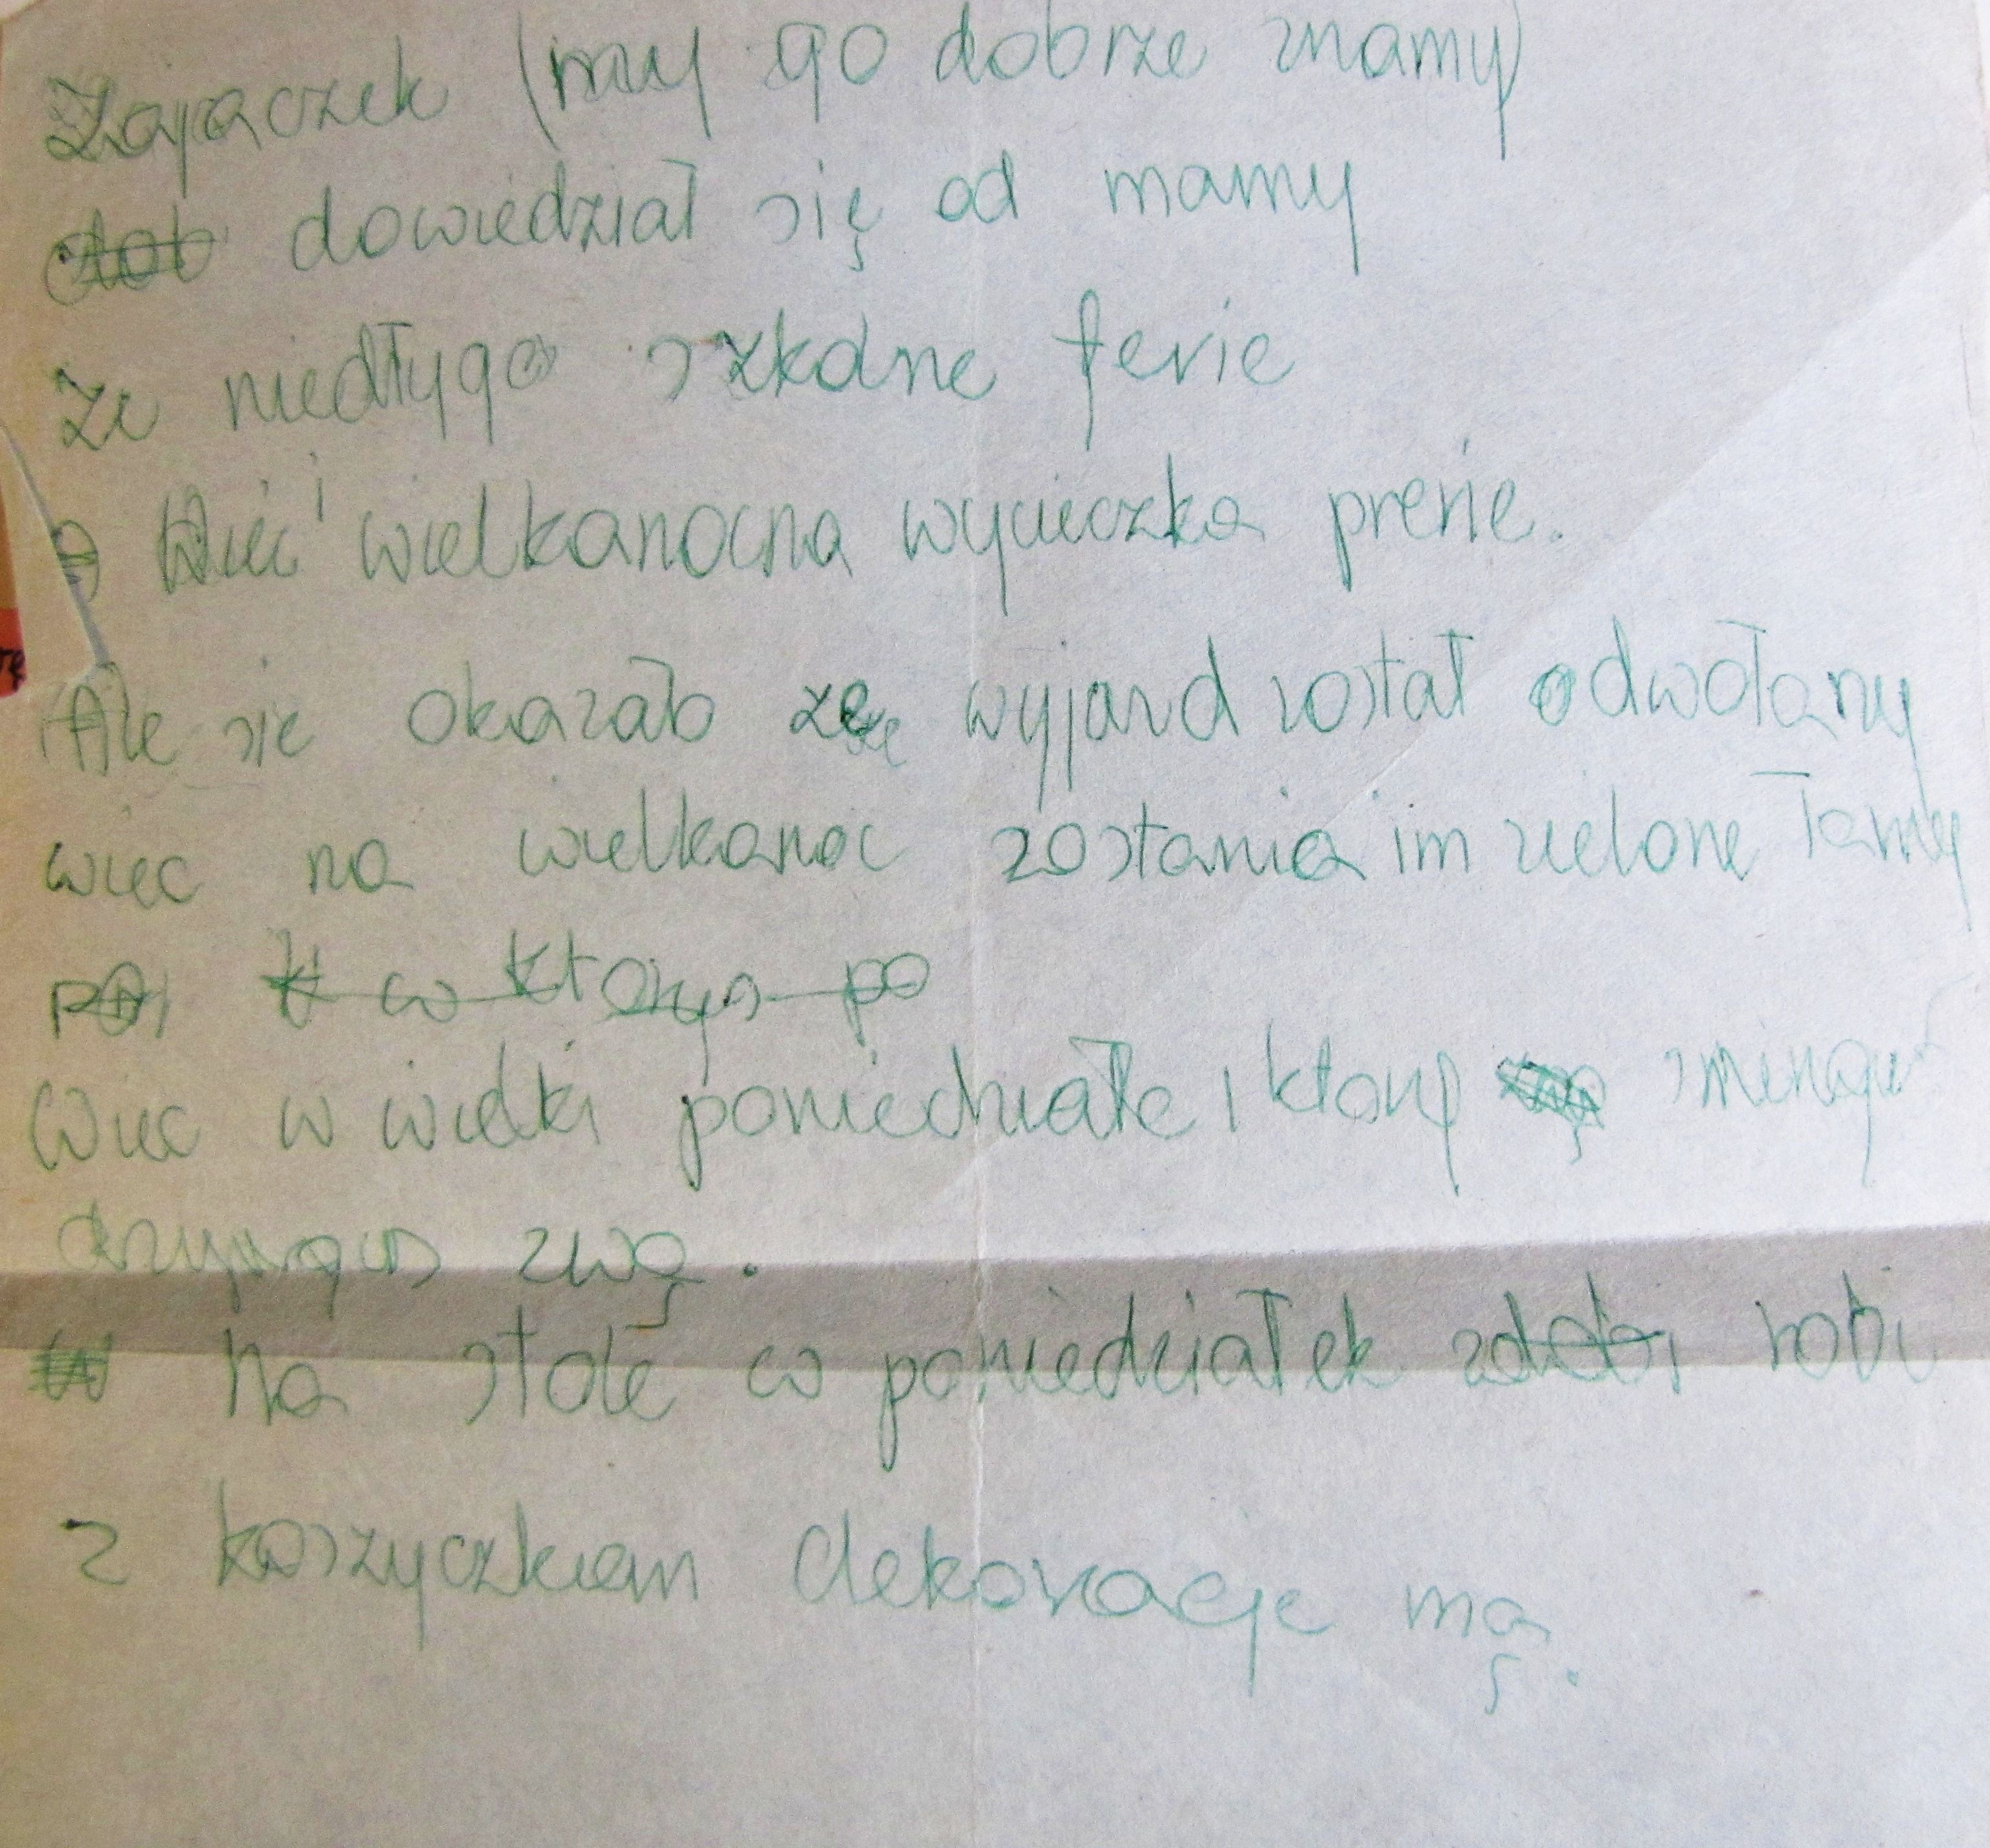 Zajaczek (my go dobrze znamy)
dob dowiedział się od mamy
że niedłygo szkolne ferie
Wiec i wielkanocna wycieczka prerie.
Ale sie okazało ze wyjazd został odwołany
wiec na wielkanoc zostania im zielone łamy
w ktorys po
Wiec w wielki poniedziałe i ktory smingus
dzyngus zwą.
W Na stole w poniedziałek zdobi robi
z koszyczkiem dekoracje mą.